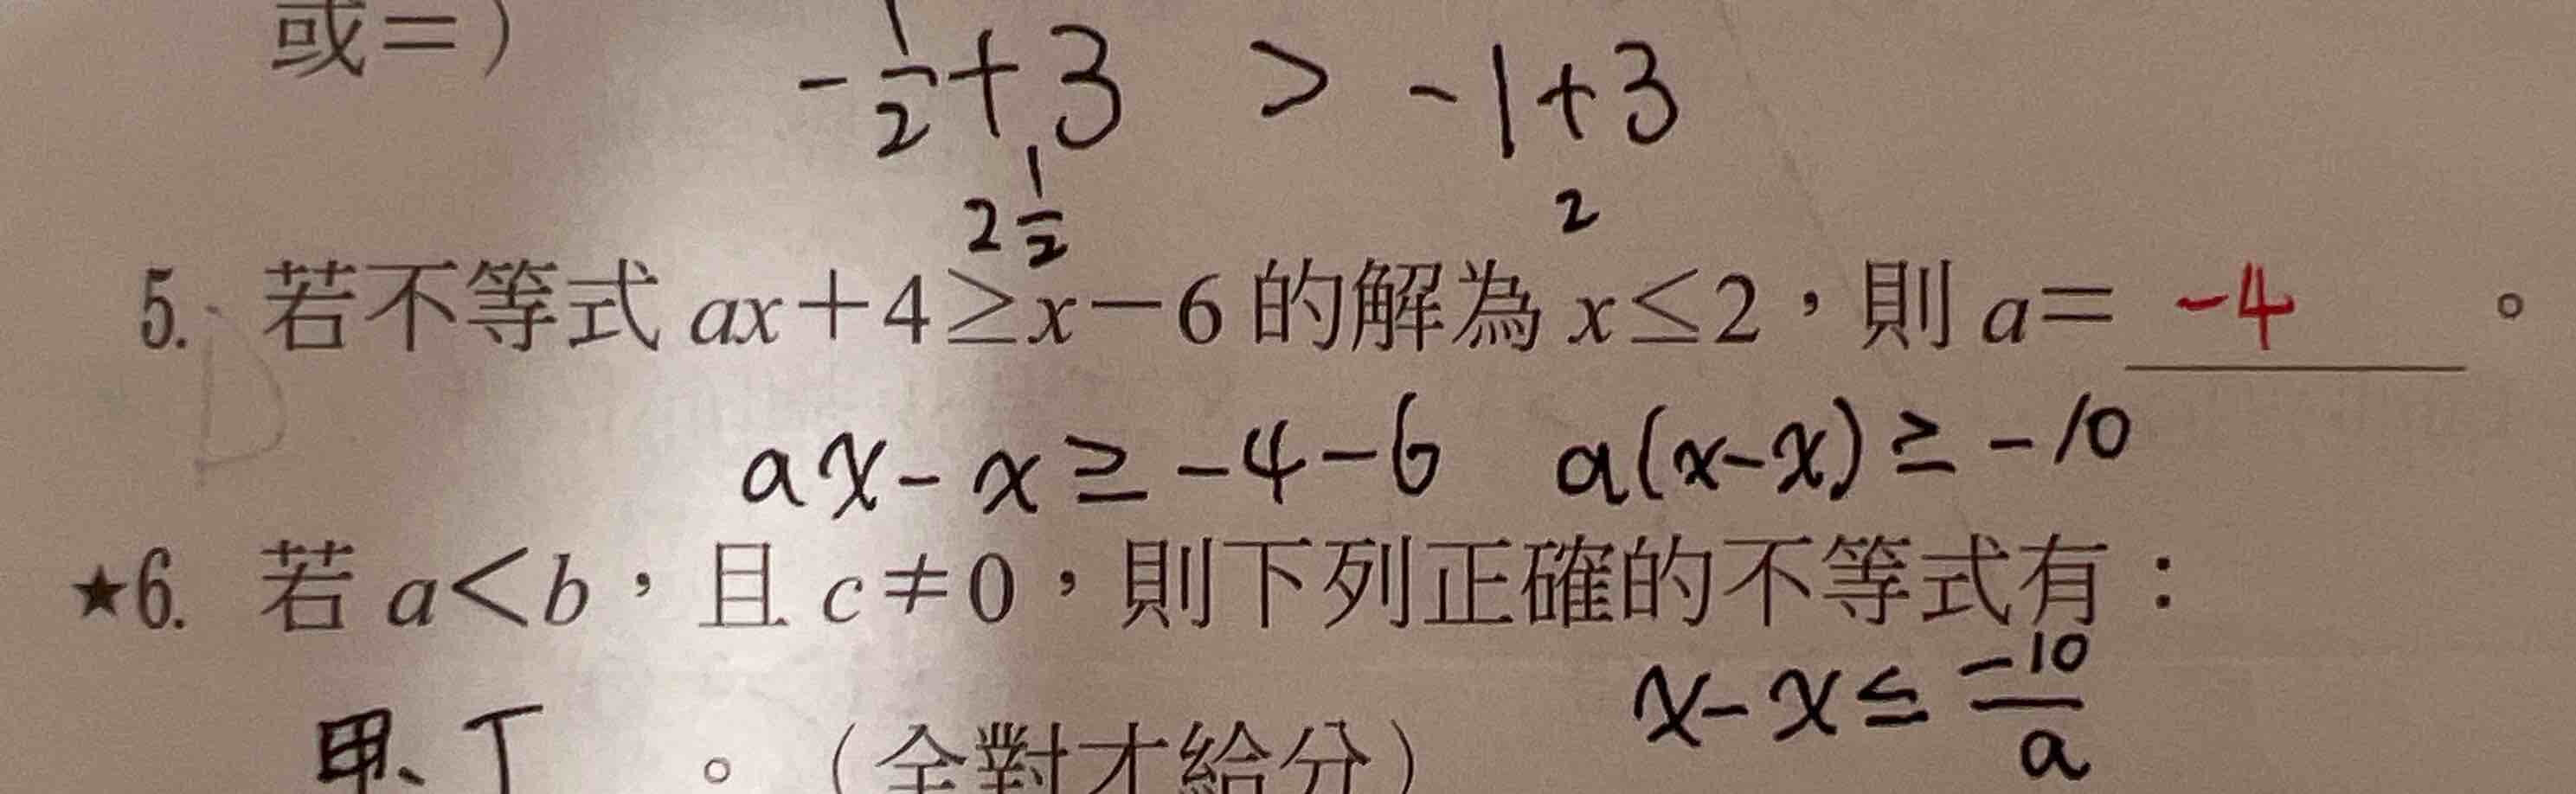 或＝）
-1/2+3 > -1+3
2 1/2 2
5. 若不等式 ax＋4≥x－6 的解為 x≤2，則 a＝ -4 。
ax-x≥-4-6 a(x-x)≥-10
★6. 若 a＜b，且 c≠0，則下列正確的不等式有：
x-x≤-10/a
甲、丁 。（全對才給分）